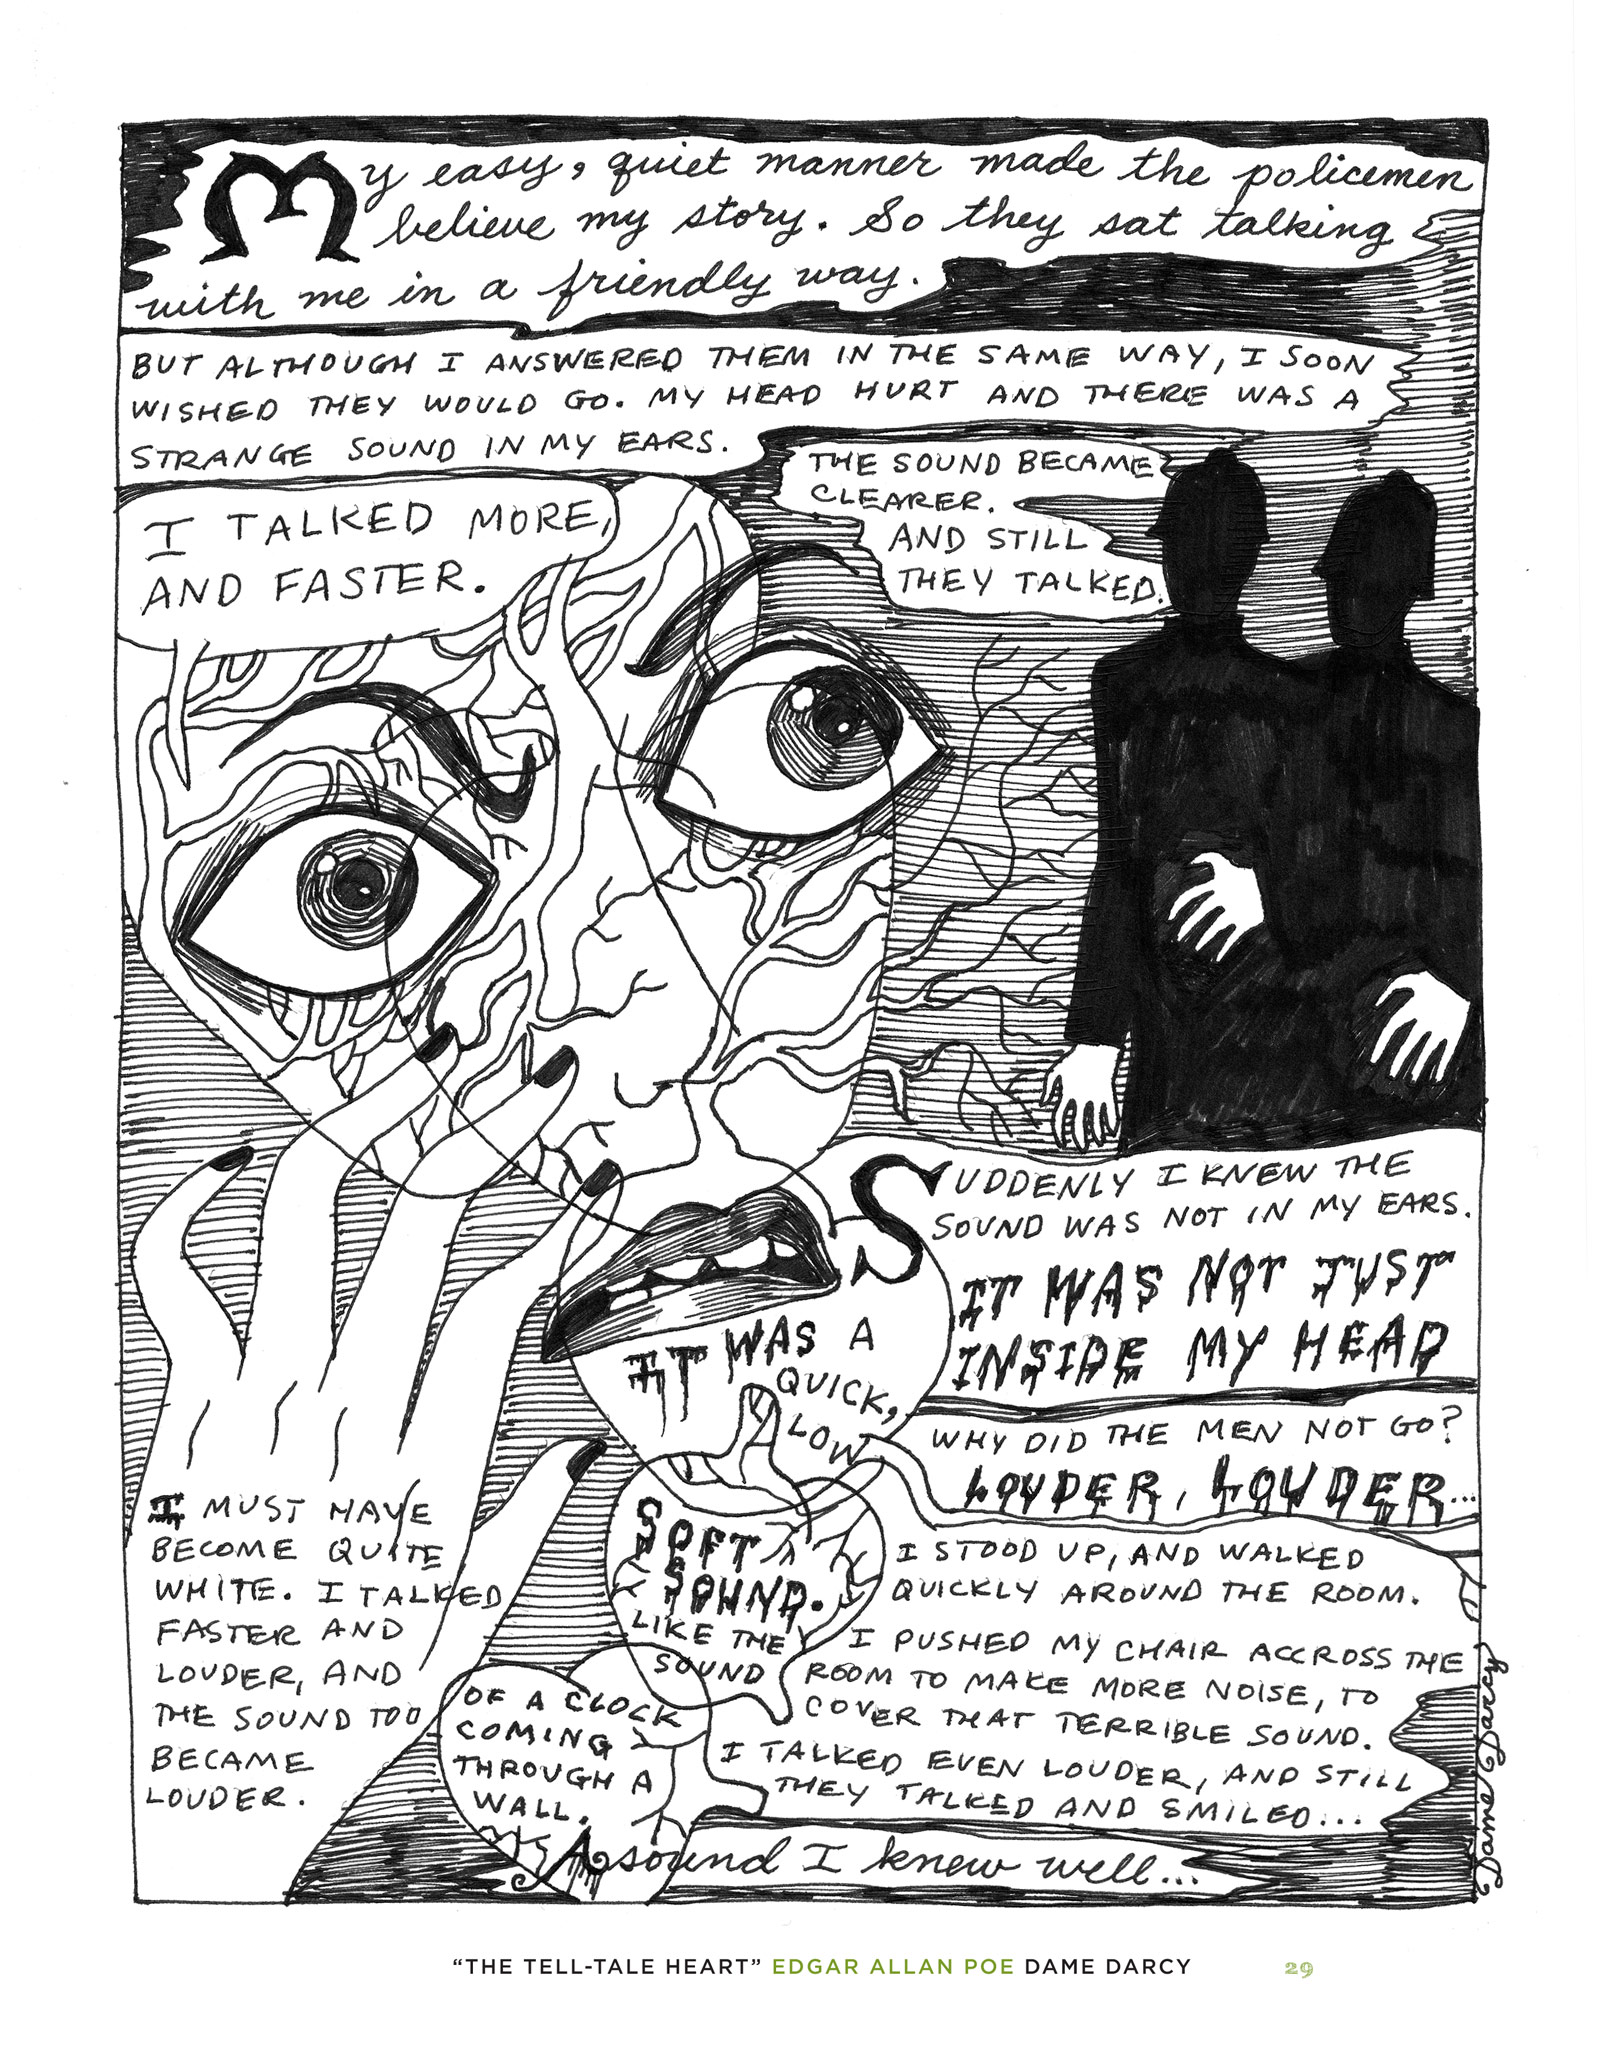 My easy, quiet manner made the policemen
believe my story. So they sat talking
with me in a friendly way.
BUT ALTHOUGH I ANSWERED THEM IN THE SAME WAY, I SOON
WISHED THEY WOULD GO. MY HEAD HURT AND THERE WAS A
STRANGE SOUND IN MY EARS.
THE SOUND BECAME
CLEARER.
AND STILL
THEY TALKED.
I TALKED MORE,
AND FASTER.
SUDDENLY I KNEW THE
SOUND WAS NOT IN MY EARS.
IT WAS NOT JUST
INSIDE MY HEAD
I MUST HAVE
BECOME QUITE
WHITE. I TALKED
FASTER AND
LOUDER, AND
THE SOUND TOO
BECAME
LOUDER.
IT WAS A
QUICK,
LOW
SOFT
SOUND.
LIKE THE
SOUND
OF A CLOCK
COMING
THROUGH A
WALL.
A sound I knew well...
WHY DID THE MEN NOT GO?
LOUDER, LOUDER...
I STOOD UP, AND WALKED
QUICKLY AROUND THE ROOM.
I PUSHED MY CHAIR ACCROSS THE
ROOM TO MAKE MORE NOISE, TO
COVER THAT TERRIBLE SOUND.
I TALKED EVEN LOUDER, AND STILL
THEY TALKED AND SMILED...
Dame Darcy
“THE TELL-TALE HEART” EDGAR ALLAN POE DAME DARCY 29